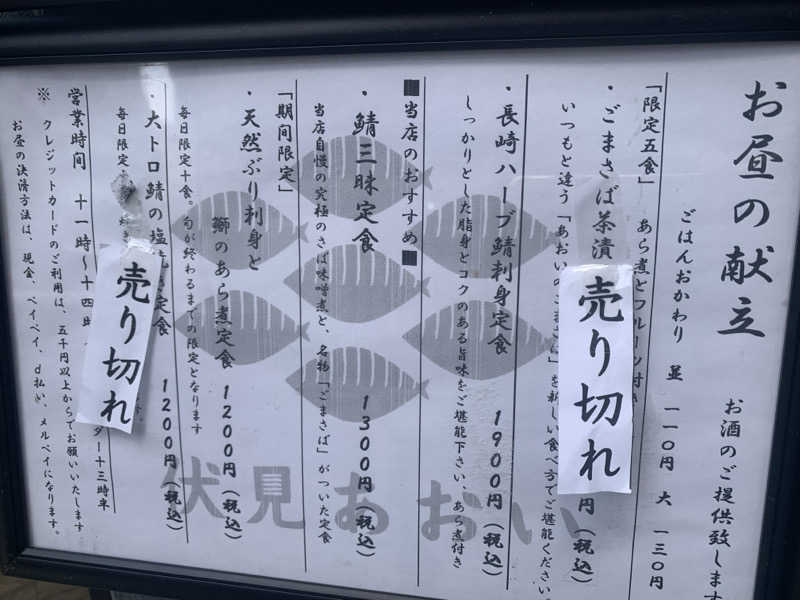 お昼の献立
お酒のご提供致しま
ごはんおかわり 並 一一〇円 大 一三〇円
「限定五食」 あら煮とフルーツ付
・ごまさば茶漬 円(税込)
売り切れ
いつもと違う「あおいのごまさば」を新しい食べ方でご堪能ください
・長崎ハーブ鯖刺身定食 1900円(税込)
しっかりとした脂身とコクのある旨味をご堪能下さい、あら煮付き
■当店のおすすめ■
・鯖三昧定食 1300円(税込)
当店自慢の究極のさば味噌煮と、名物「ごまさば」がついた定食
「期間限定」
・天然ぶり刺身と
鰤のあら煮定食 1200円(税込)
毎日限定十食。旬が終わるまでの限定となります
・大トロ鯖の塩 定食 1200円(税込)
毎日限定
売り切れ
営業時間 十一時~十四時 ダー十三時半
※ クレジットカードのご利用は、五千円以上からでお願いいたします
お昼の決済方法は、現金、ペイペイ、d払い、メルペイになります。
伏見あおい